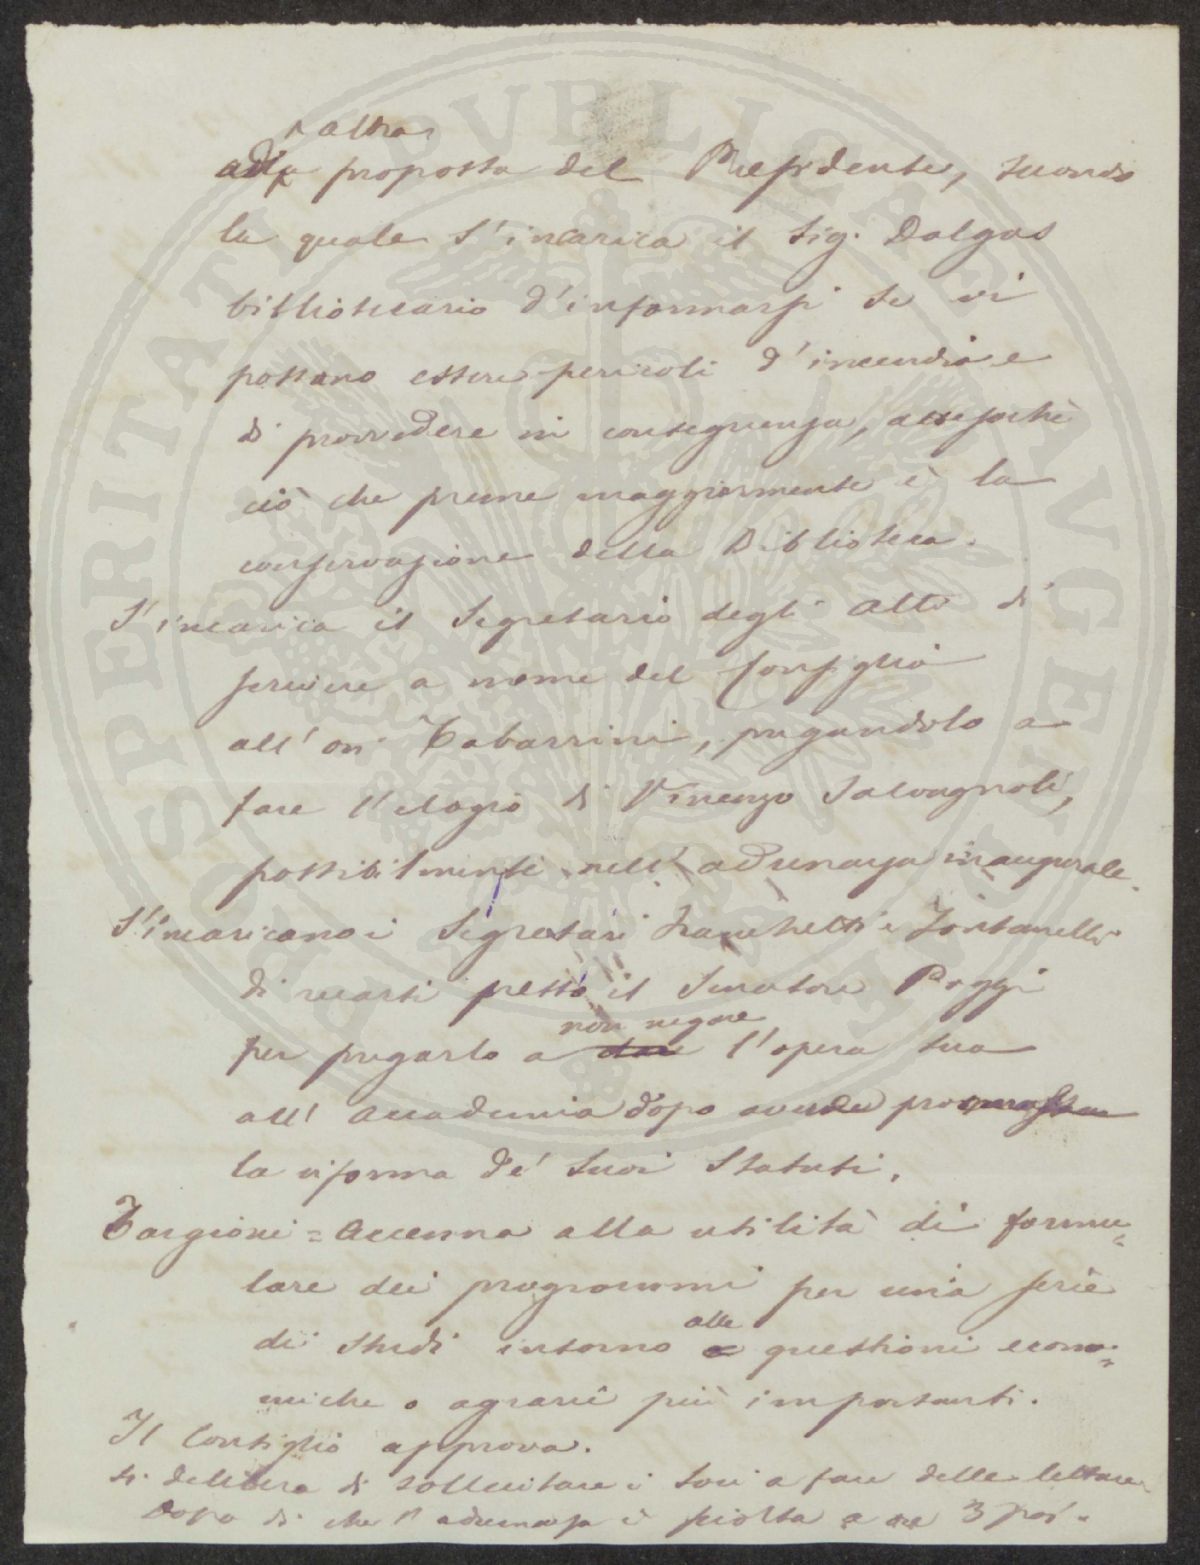 altra
alla proposta del Presidente, secondo
la quale s'incarica il Sig. Dalgas
bibliotecario d'informarsi se vi
possano essere pericoli d'incendio e
di provvedere in conseguenza, accesochè
ciò che preme maggiormente è la
conservazione della Biblioteca.
S'incarica il Segretario degli Atti di
scrivere a nome del Consiglio
all'on. Tabarrini, pregandolo a
fare l'elogio di Vincenzo Salvagnoli,
possibilmente nell'adunanza inaugurale.
S'incaricano i Segretari Franchetti e Fontanelli
di recarsi presso il Senatore Poggi
non negare
per pregarlo a dare l'opera sua
all'Accademia dopo averne
la riforma de' suoi Statuti.
Targioni = Accenna alla utilità di formu=
lare dei programmi per una serie
alle
di studi intorno a questioni econo=
miche o agrarie più importanti.
Il Consiglio approva.
Si delibera di sollecitare i Soci a fare delle letture
Dopo di che l'adunanza è sciolta a ore 3 pom.
PROSPERITATI PVBLICAE AVGENDAE